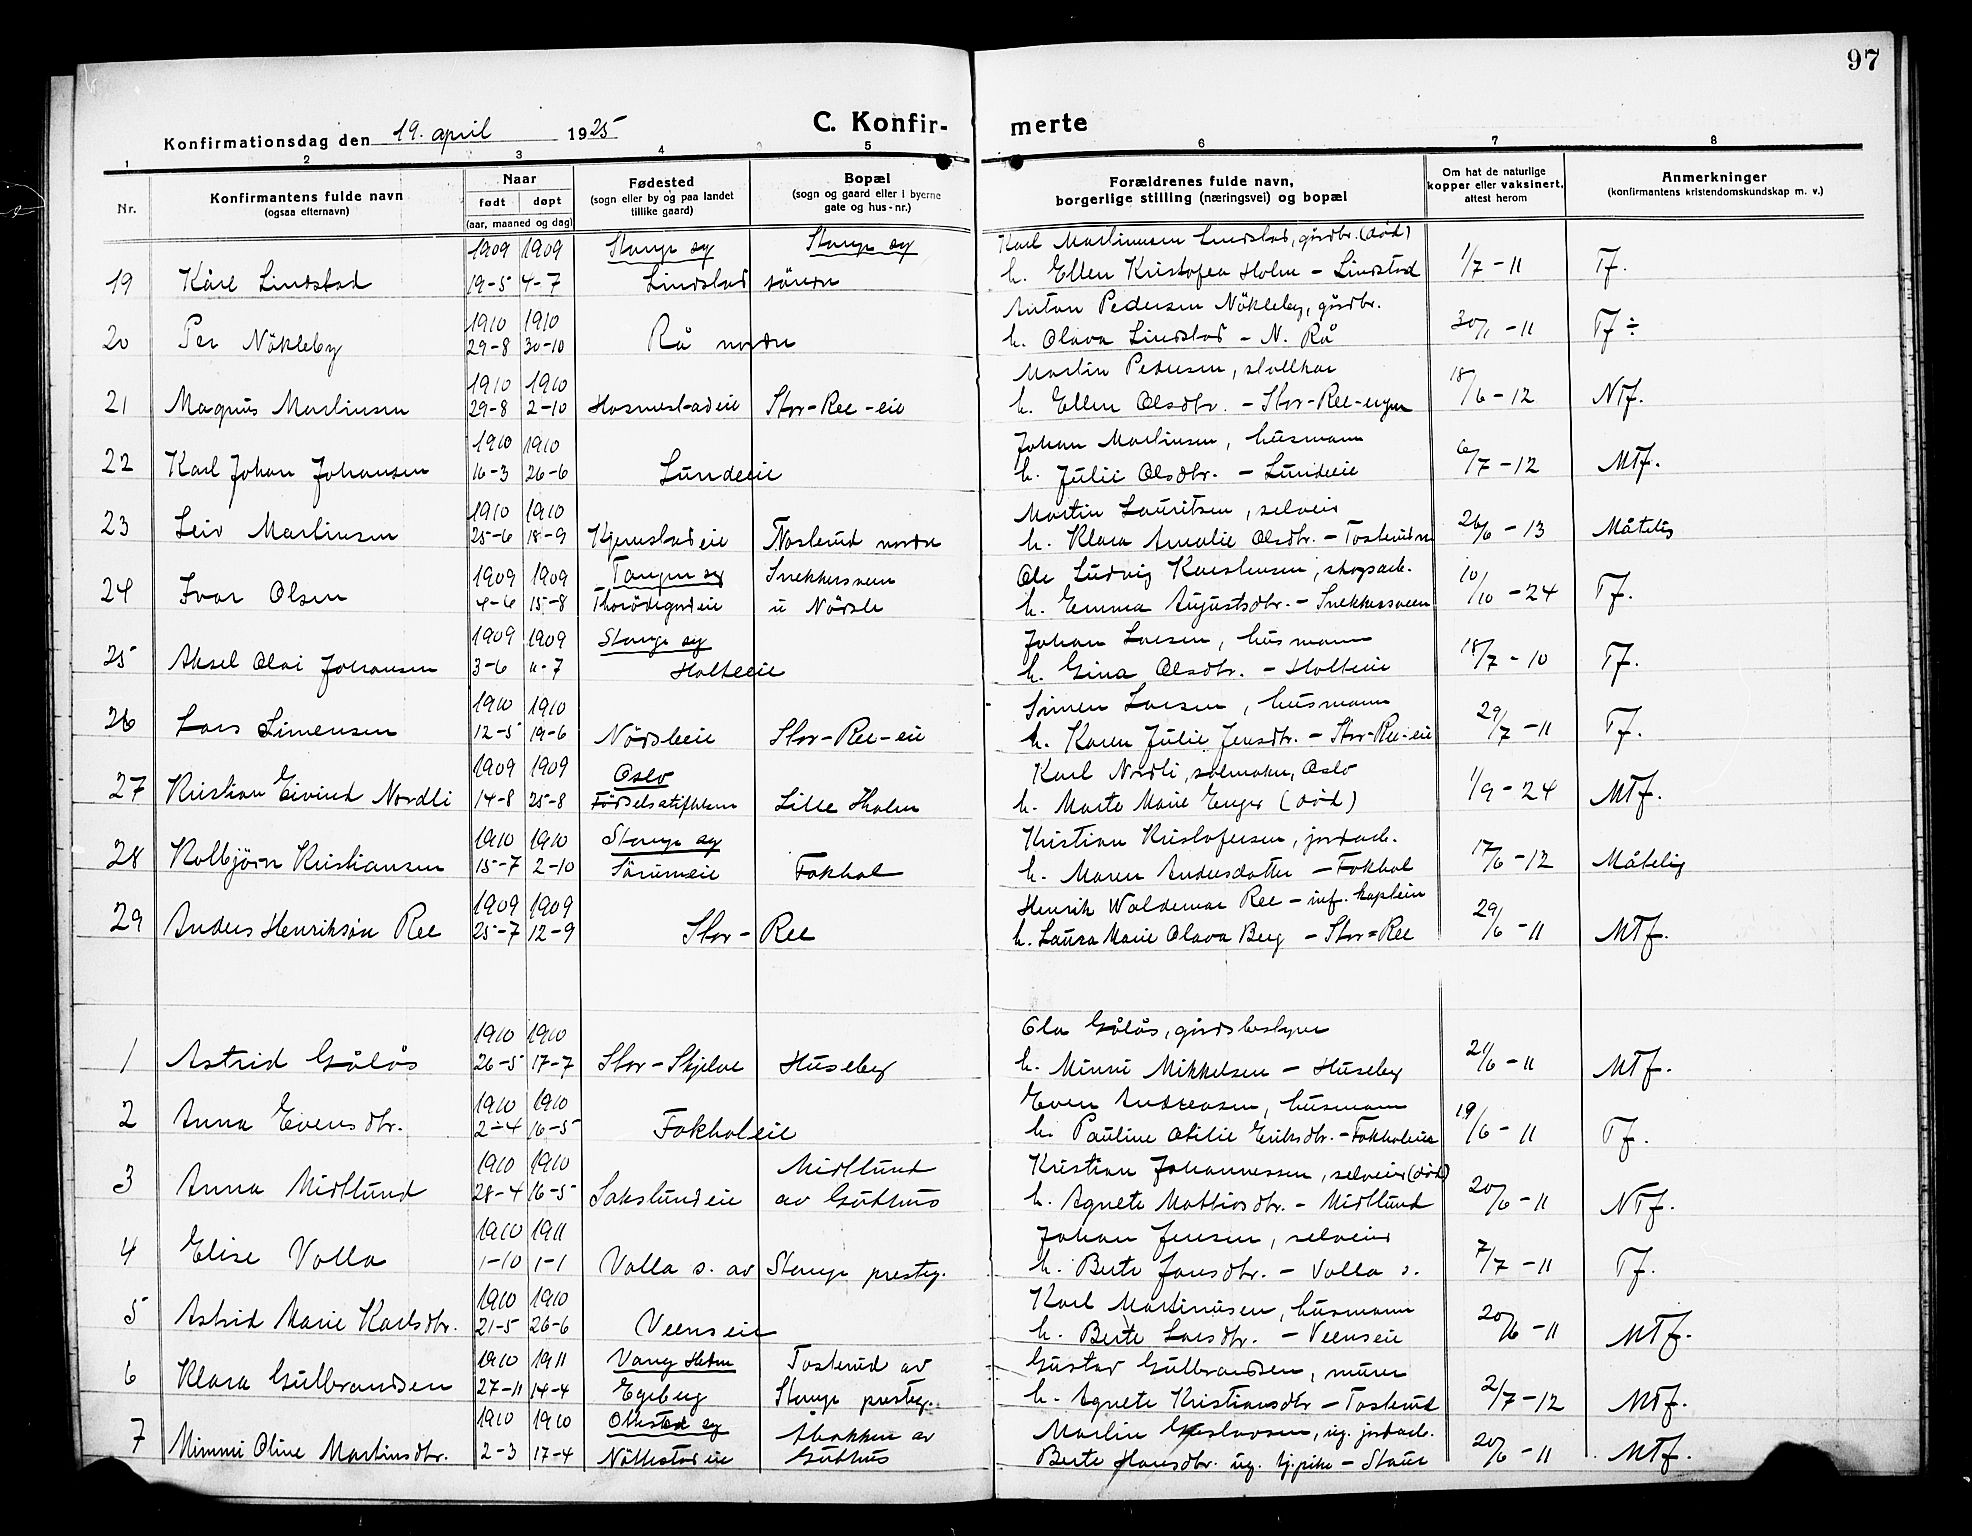 97
Konfirmationsdag den 19. april 1925 C. Konfirmerte
1 2 3 4 5 6 7 8
Nr.
Konfirmantens fulde navn
(ogsaa efternavn)
Naar
født døpt
(aar, maaned og dag)
Fødested
(sogn eller by og paa landet
tillike gaard)
Bopæl
(sogn og gaard eller i byerne
gate og hus-nr.)
Forældrenes fulde navn,
borgerlige stilling (næringsvei) og bopæl
Om hat de naturlige
kopper eller vaksinert,
attest herom
Anmerkninger
(konfirmantens kristendomskundskap m. v.)
1909 1909 Stange sg Stange sg Karl Martinusen Lindstad, gårdbr. (død)
19 Kåre Lindstad 19-5 4-7 Lindstad søndre h. Ellen Kristofea Holm - Lindstad 1/7-11 Tf.
1910 1910 Anton Pedersen Nökleby, gårdbr.
20 Per Nökleby 29-8 30-10 Rå nordre h. Olava Lindstad - N. Rå 30/1-11 Tf ÷
1910 1910 Martin Pedersen, stallkar
21 Magnus Martinsen 29-8 2-10 Hosmestadeie Stor-Ree-eie h. Ellen Olsdtr. - Stor-Ree-eien 18/6-12 NTf.
1910 1910 Johan Martinsen, husmann
22 Karl Johan Johansen 16-3 26-6 Lundeeie h. Julie Olsdtr. - Lundeeie 6/7-12 MTf.
1910 1910 Martin Lauritsen, selveier
23 Leiv Martinsen 25-6 18-9 Kjemstadeie Tosterud nordre h. Klara Amalie Olsdtr. - Tosterud n 26/6-13 Måtelig
1909 1909 Tangen sg Snekkersveen Ole Ludvig Karstensen, skogsarb.
24 Ivar Olsen 4-6 15-8 Thorödegårdeie u Nordsle h. Emma Augustsdtr. - Snekkersveen 10/10-24 Tf.
1909 1909 Stange sg Johan Larsen, husmann
25 Aksel Olai Johansen 3-6 11-7 Holteeie h. Gina Olsdtr. - Holteeie 18/7-10 Tf.
1910 1910 Simen Larsen, husmann
26 Lars Simensen 12-5 19-6 Nordsleeie Stor-Ree-eie h. Karen Julie Jensdtr. - Stor-Ree-eie 29/7-11 Tf.
1909 1909 Oslo Karl Nordli, salmaker, Oslo
27 Kristian Eivind Nordli 14-8 25-8 Födselsstiftelsen Lille Holm h. Marte Marie Enger (död) 1/9-24 MTf.
1910 1910 Stange sg Kristian Kristofersen, jordarb.
28 Kolbjörn Kristiansen 15-7 2-10 Sörumeie Fokhol h. Maren Andersdatter - Fokhol 17/6-12 Måtelig
1909 1909 Henrik Waldemar Ree - inf. kaptein
29 Anders Henriksön Ree 25-7 12-9 Stor-Ree h. Laura Marie Olava Berg - Stor-Ree 29/6-11 MTf.
1910 1910 Ola Gålås, gårdsbestyrer
1 Astrid Gålås 26-5 17-7 Stor-Skjelve Huseby h. Minni Mikkelsen - Huseby 21/6-11 MTf.
1910 1910 Even Andreasen, husmann
2 Anna Evensdtr. 2-4 16-5 Fokholeie h. Pauline Otilie Eriksdtr. - Fokholeie 19/6-11 Tf.
1910 1910 Midtlund Kristian Johannessen, selveier (död)
3 Anna Midtlund 28-4 16-5 Sakslundeie av Guthus h. Agnete Mattiasdtr. - Midtlund 20/6-11 NTf.
1910 1911 Johan Jensen, selveier
4 Elise Volla 1-10 1-1 Volla s. av Stange presteg. h. Berte Jansdtr. - Volla s. 7/7-11 Tf.
1910 1910 Karl Martinusen, husmann
5 Astrid Marie Karlsdtr. 21-5 26-6 Veenseie h. Berte Larsdtr. - Veenseie 20/6-11 MTf.
1910 1911 Vang Hedm Tosterud av Gustav Gulbrandsen, murer
6 Klara Gulbrandsen 27-11 14-4 Egeberg Stange presteg. h. Agnete Kristiansdtr - Tosterud 2/7-12 MTf.
1910 1910 Ottestad sg Åbakken av Martin Gustavsen, ug. jordarb.
7 Mimmi Oline Martinsdtr. 2-3 17-4 Nöttestadeie Guthus Berte Hansdtr. ug. tj.pike - Staur 20/6-11 MTf.